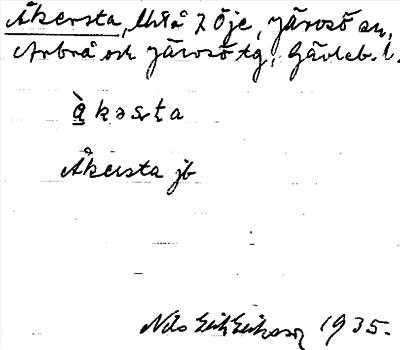 Åkersta, Ultå 7 Öje, Järvsö sn,
Arbrå och Järvsö tg, Gävleb. l.
å̀kəsta
Åkersta jb
Nils Erik Eriksson 1935.